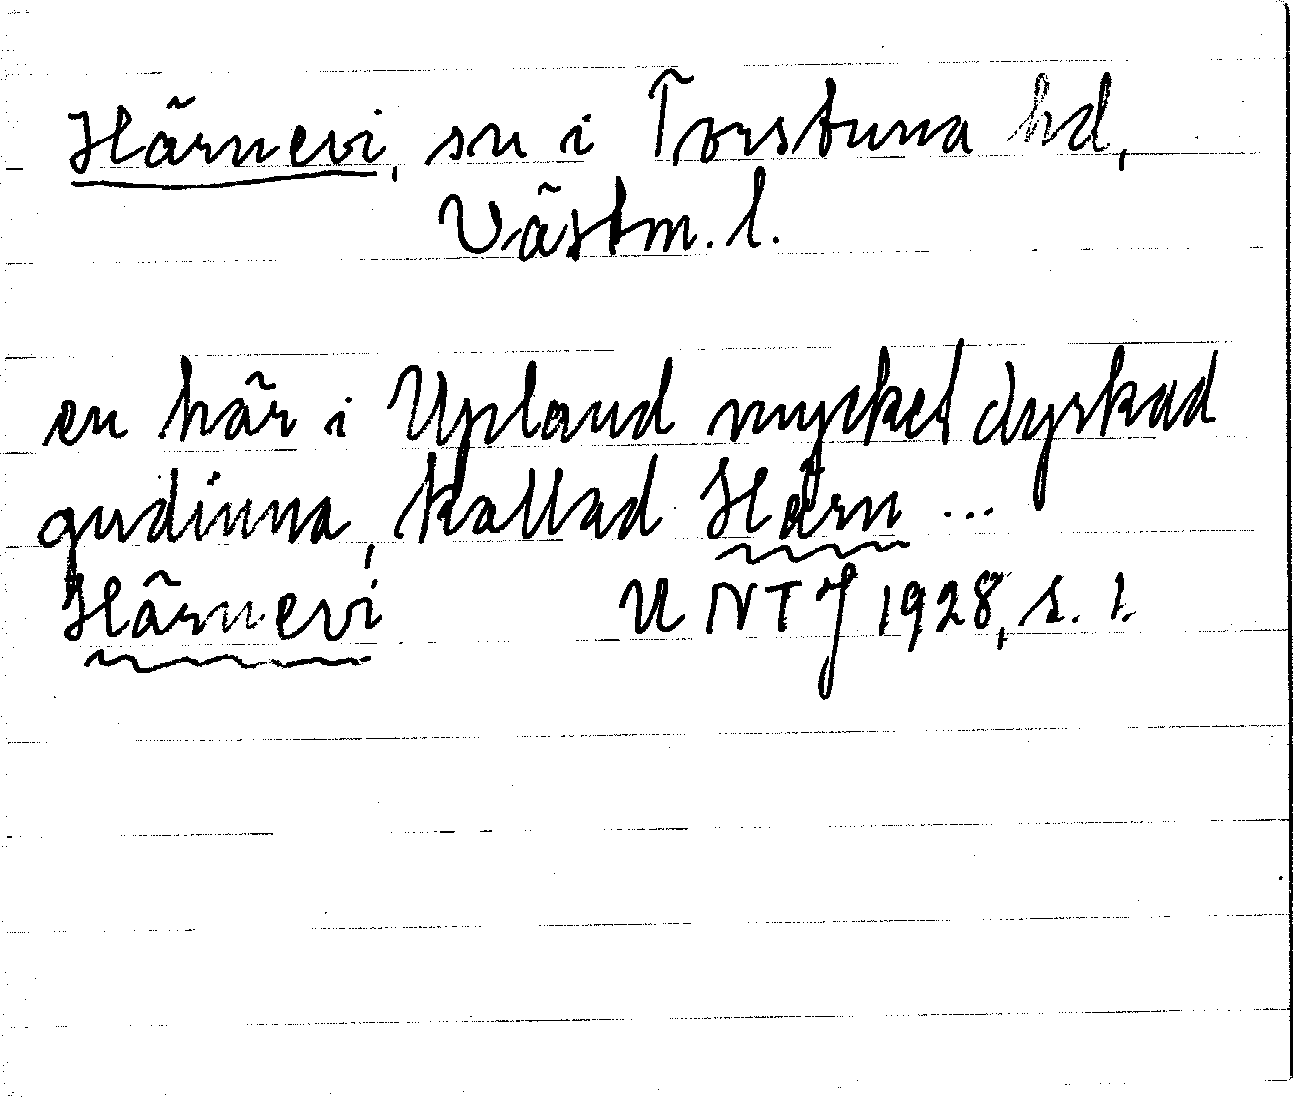 Härnevi, sn i Torstuna hd,
Västm. l.
en här i Upland mycket dyrkad
gudinna, kallad Härn ...
Härnevi U NT J 1928, s. 1.